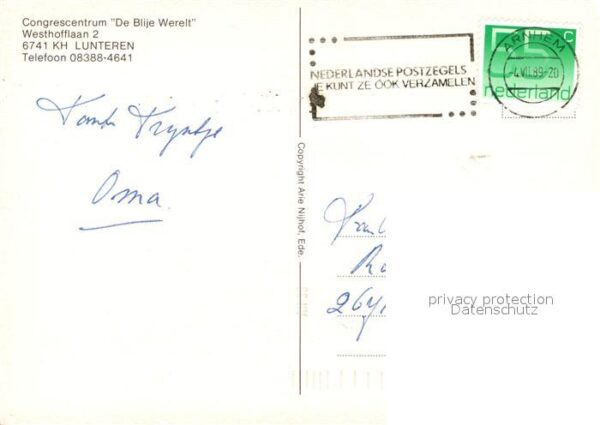 Congrescentrum "De Blije Werelt"
Westhofflaan 2
6741 KH LUNTEREN
Telefoon 08388-4641
Tante Tryntje
Oma
Copyright Arie Nijhof, Ede.
NEDERLANDSE POSTZEGELS
JE KUNT ZE ÓÓK VERZAMELEN
ARNHEM
-4.VII.89-20
55 c
nederland
privacy protection
Datenschutz